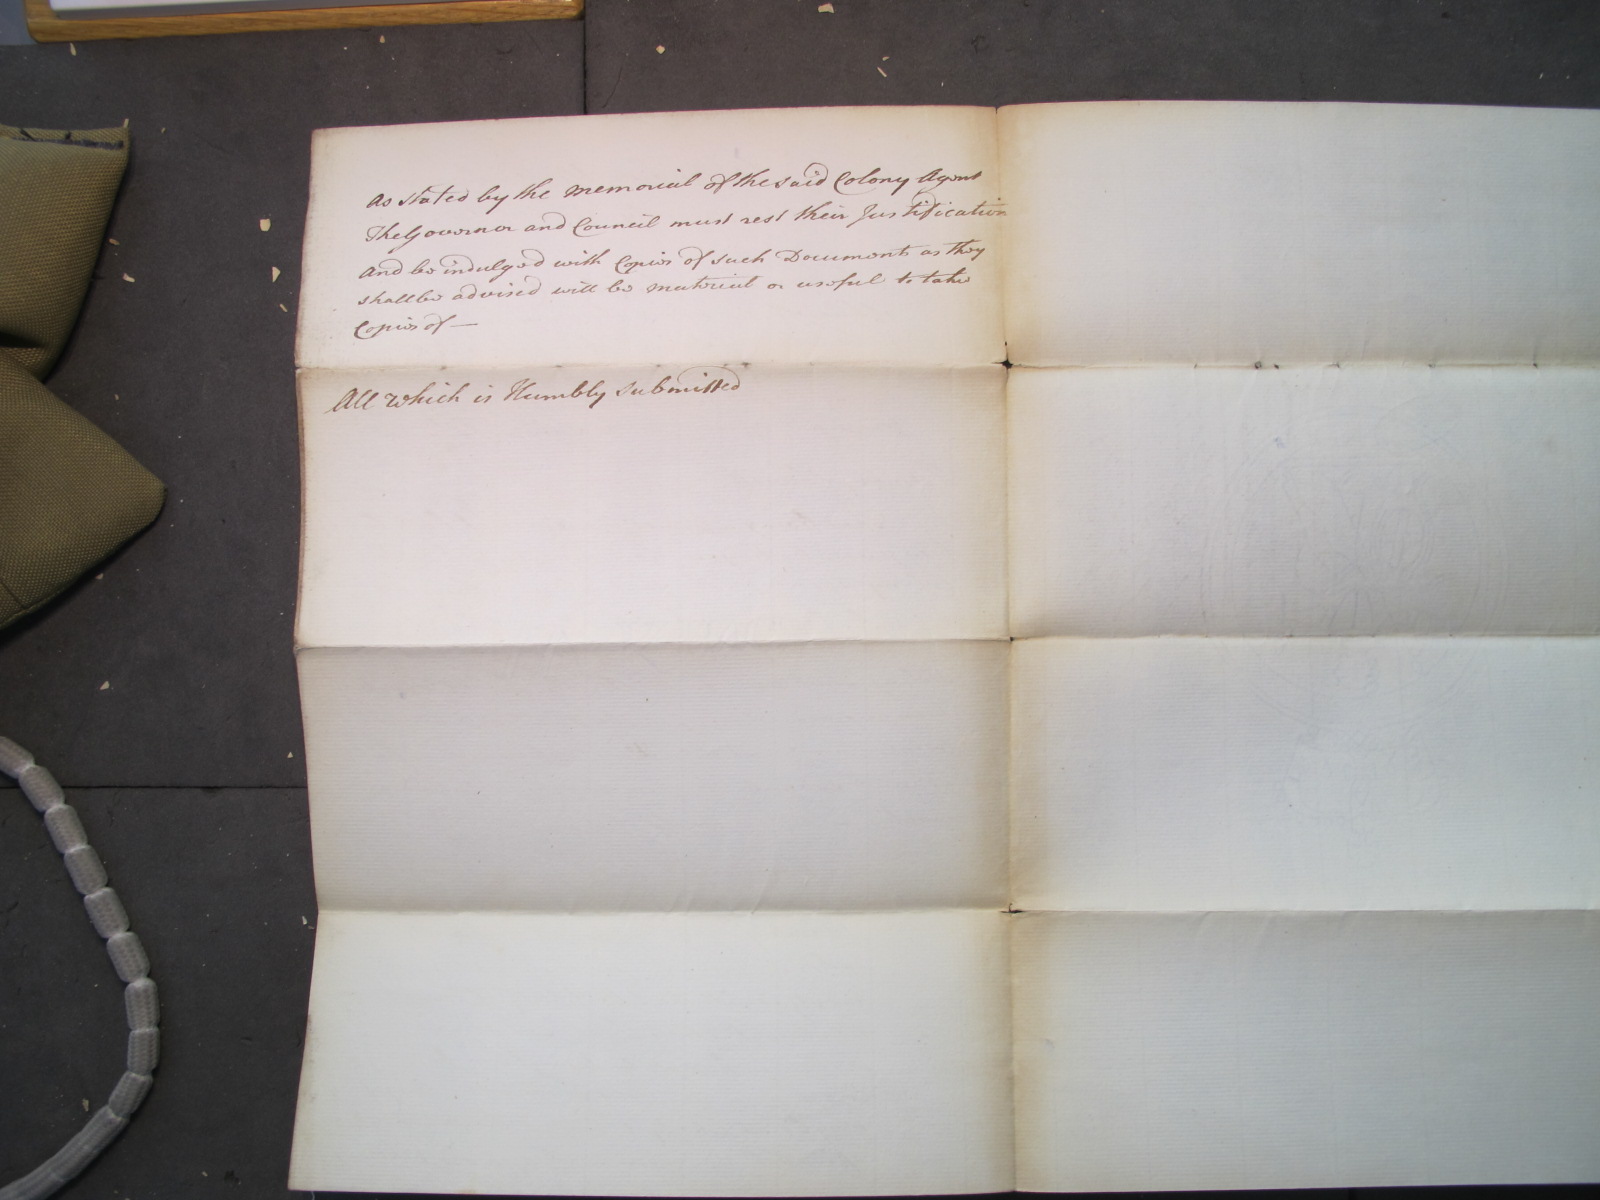 As stated by the Memorial of the said Colony Agent
The Governor and Council must rest their Justification
And be indulged with Copies of such Documents as they
shall be advised will be material or useful to take
Copies of —
All which is Humbly submitted